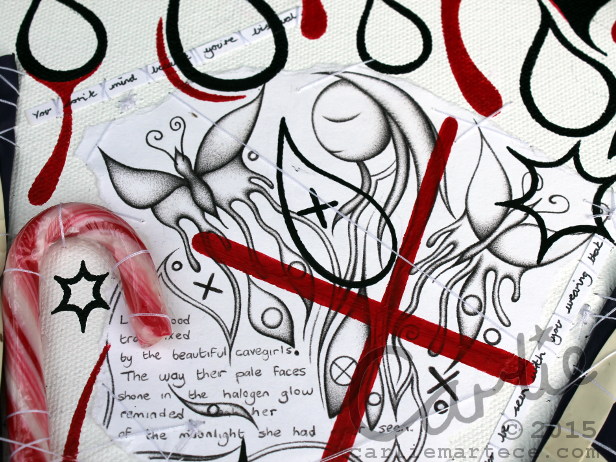 You don't mind because you're bisexual
by the beautiful cavegirls.
The way their pale faces
shone in the halogen glow
reminded her
of the moonlight she had seen.
seen with you wearing that
Carlie
© 2015
carliemartece.com